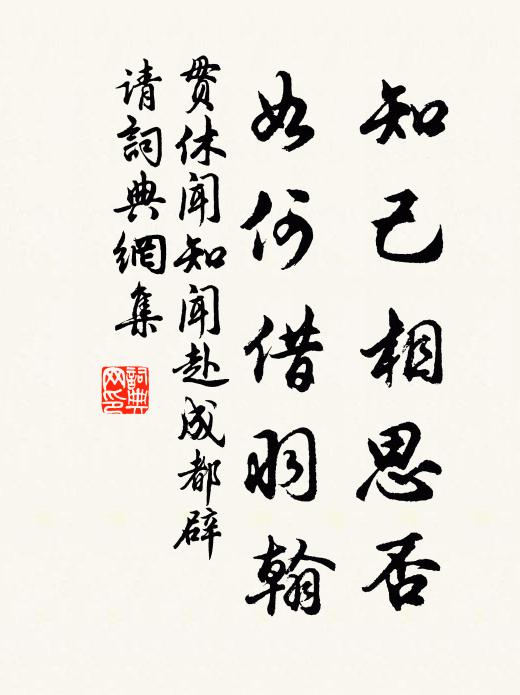 知己相思否
如何借羽翰
贯休闻知闻赴成都辟
请词典网集
词典网印